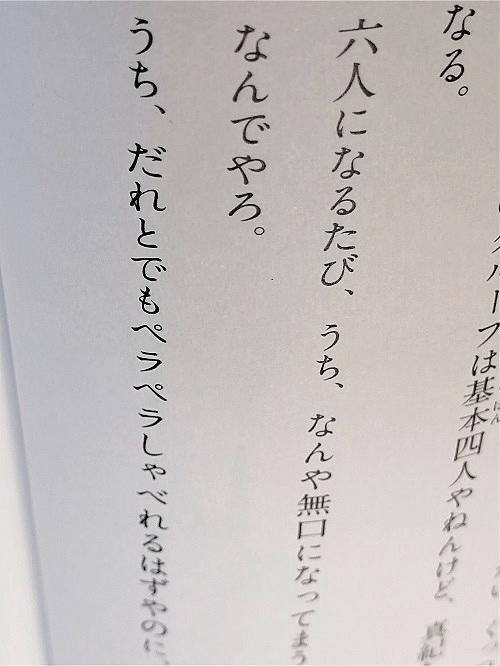 なる。
ループは基本四人やねんけど、真紀
六人になるたび、うち、なんや無口になってまう
なんでやろ。
うち、だれとでもペラペラしゃべれるはずやのに、